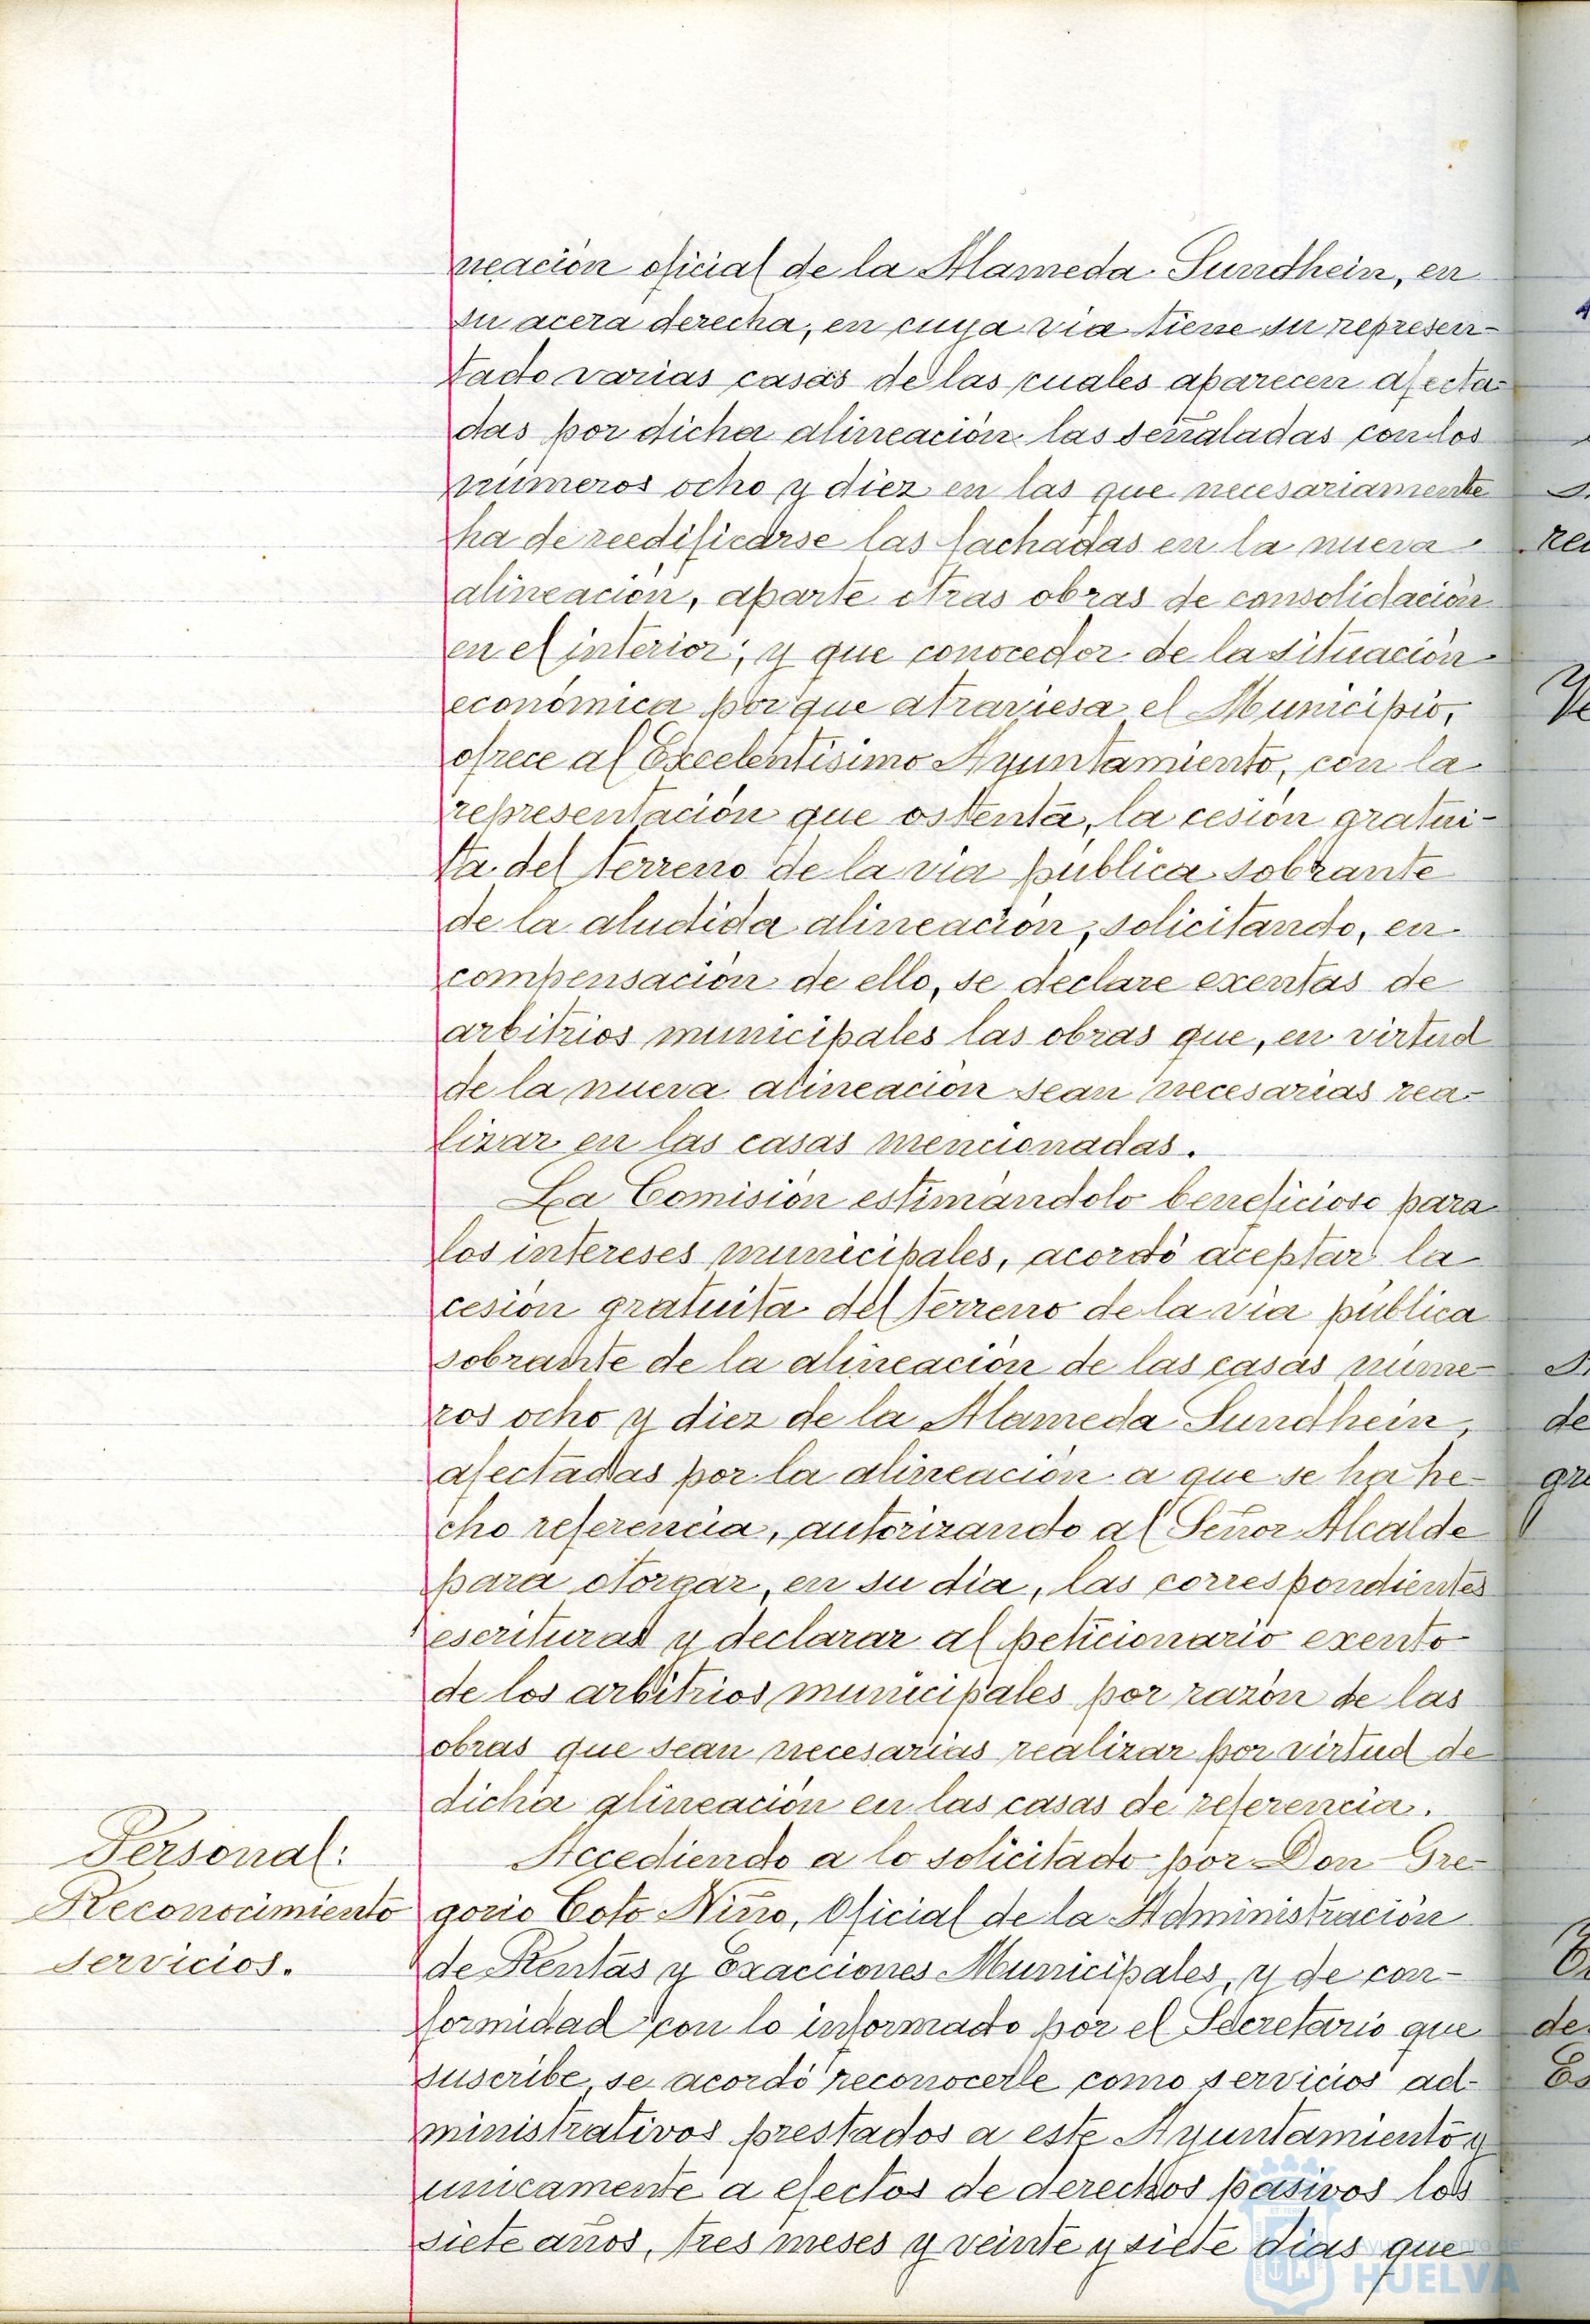 neación oficial de la Alameda Sundhein, en
su acera derecha, en cuya via tiene su represen-
tado varias casas de las cuales aparecen afecta-
das por dicha alineación las señaladas con los
números ocho y diez en las que necesariamente
ha de reedificarse las fachadas en la nueva
alineación, aparte otras obras de consolidación
en el interior; y que conocedor de la situación
económica porque atraviesa el Municipio,
ofrece al Excelentísimo Ayuntamiento, con la
representación que ostenta, la cesión gratui-
ta del terreno de la via pública sobrante
de la aludida alineación, solicitando, en
compensación de ello, se declare exentas de
arbitrios municipales las obras que, en virtud
de la nueva alineación sean necesarias rea-
lizar en las casas mencionadas.
La Comisión estimándolo beneficioso para
los intereses municipales, acordó aceptar la
cesión gratuita del terreno de la via pública
sobrante de la alineación de las casas núme-
ros ocho y diez de la Alameda Sundhein,
afectadas por la alineación a que se ha he-
cho referencia, autorizando al Señor Alcalde
para otorgar, en su dia, las correspondientes
escrituras y declarar al peticionario exento
de los arbitrios municipales por razón de las
obras que sean necesarias realizar por virtud de
dicha alineación en las casas de referencia.
Personal:
Reconocimiento
servicios.
Accediendo a lo solicitado por Don Gre-
gorio Coto Niño, Oficial de la Administración
de Rentas y Exacciones Municipales, y de con-
formidad con lo informado por el Secretario que
suscribe, se acordó reconocerle como servicios ad-
ministrativos prestados a este Ayuntamiento y
unicamente a efectos de derechos pasivos los
siete años, tres meses y veinte y siete dias que
HUELVA